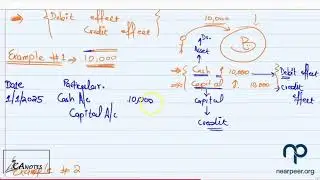 Debit effect
Credit effect
10,000
B
Dr.
Asset
Example # 1 → 10,000
Cash ↑ 10,000 → Debit effect
Capital ↑ 10,000 → Credit effect
Date Particular.
1/1/2025 Cash A/c 10,000
Capital A/c
Capital
Credit
CA NOTES
Example # 2
nearpeer.org